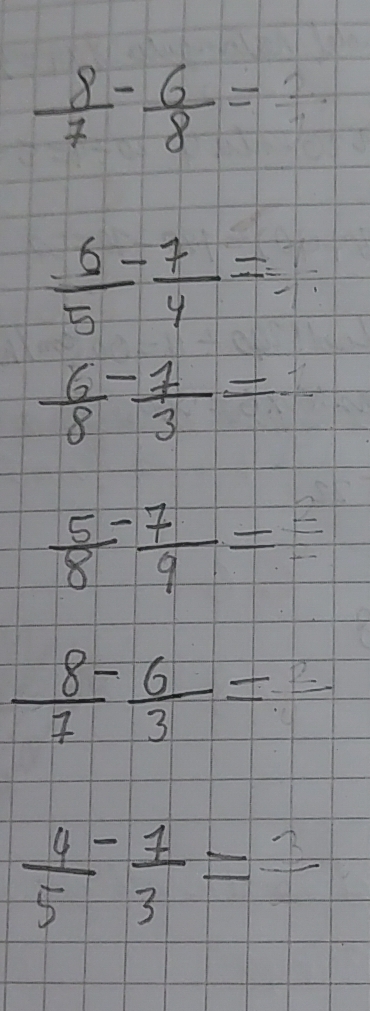 8/7 - 6/8 =
6/5 - 7/4 =
6/8 - 7/3 =
5/8 - 7/9 =
8/7 - 6/3 =
4/5 - 7/3 =